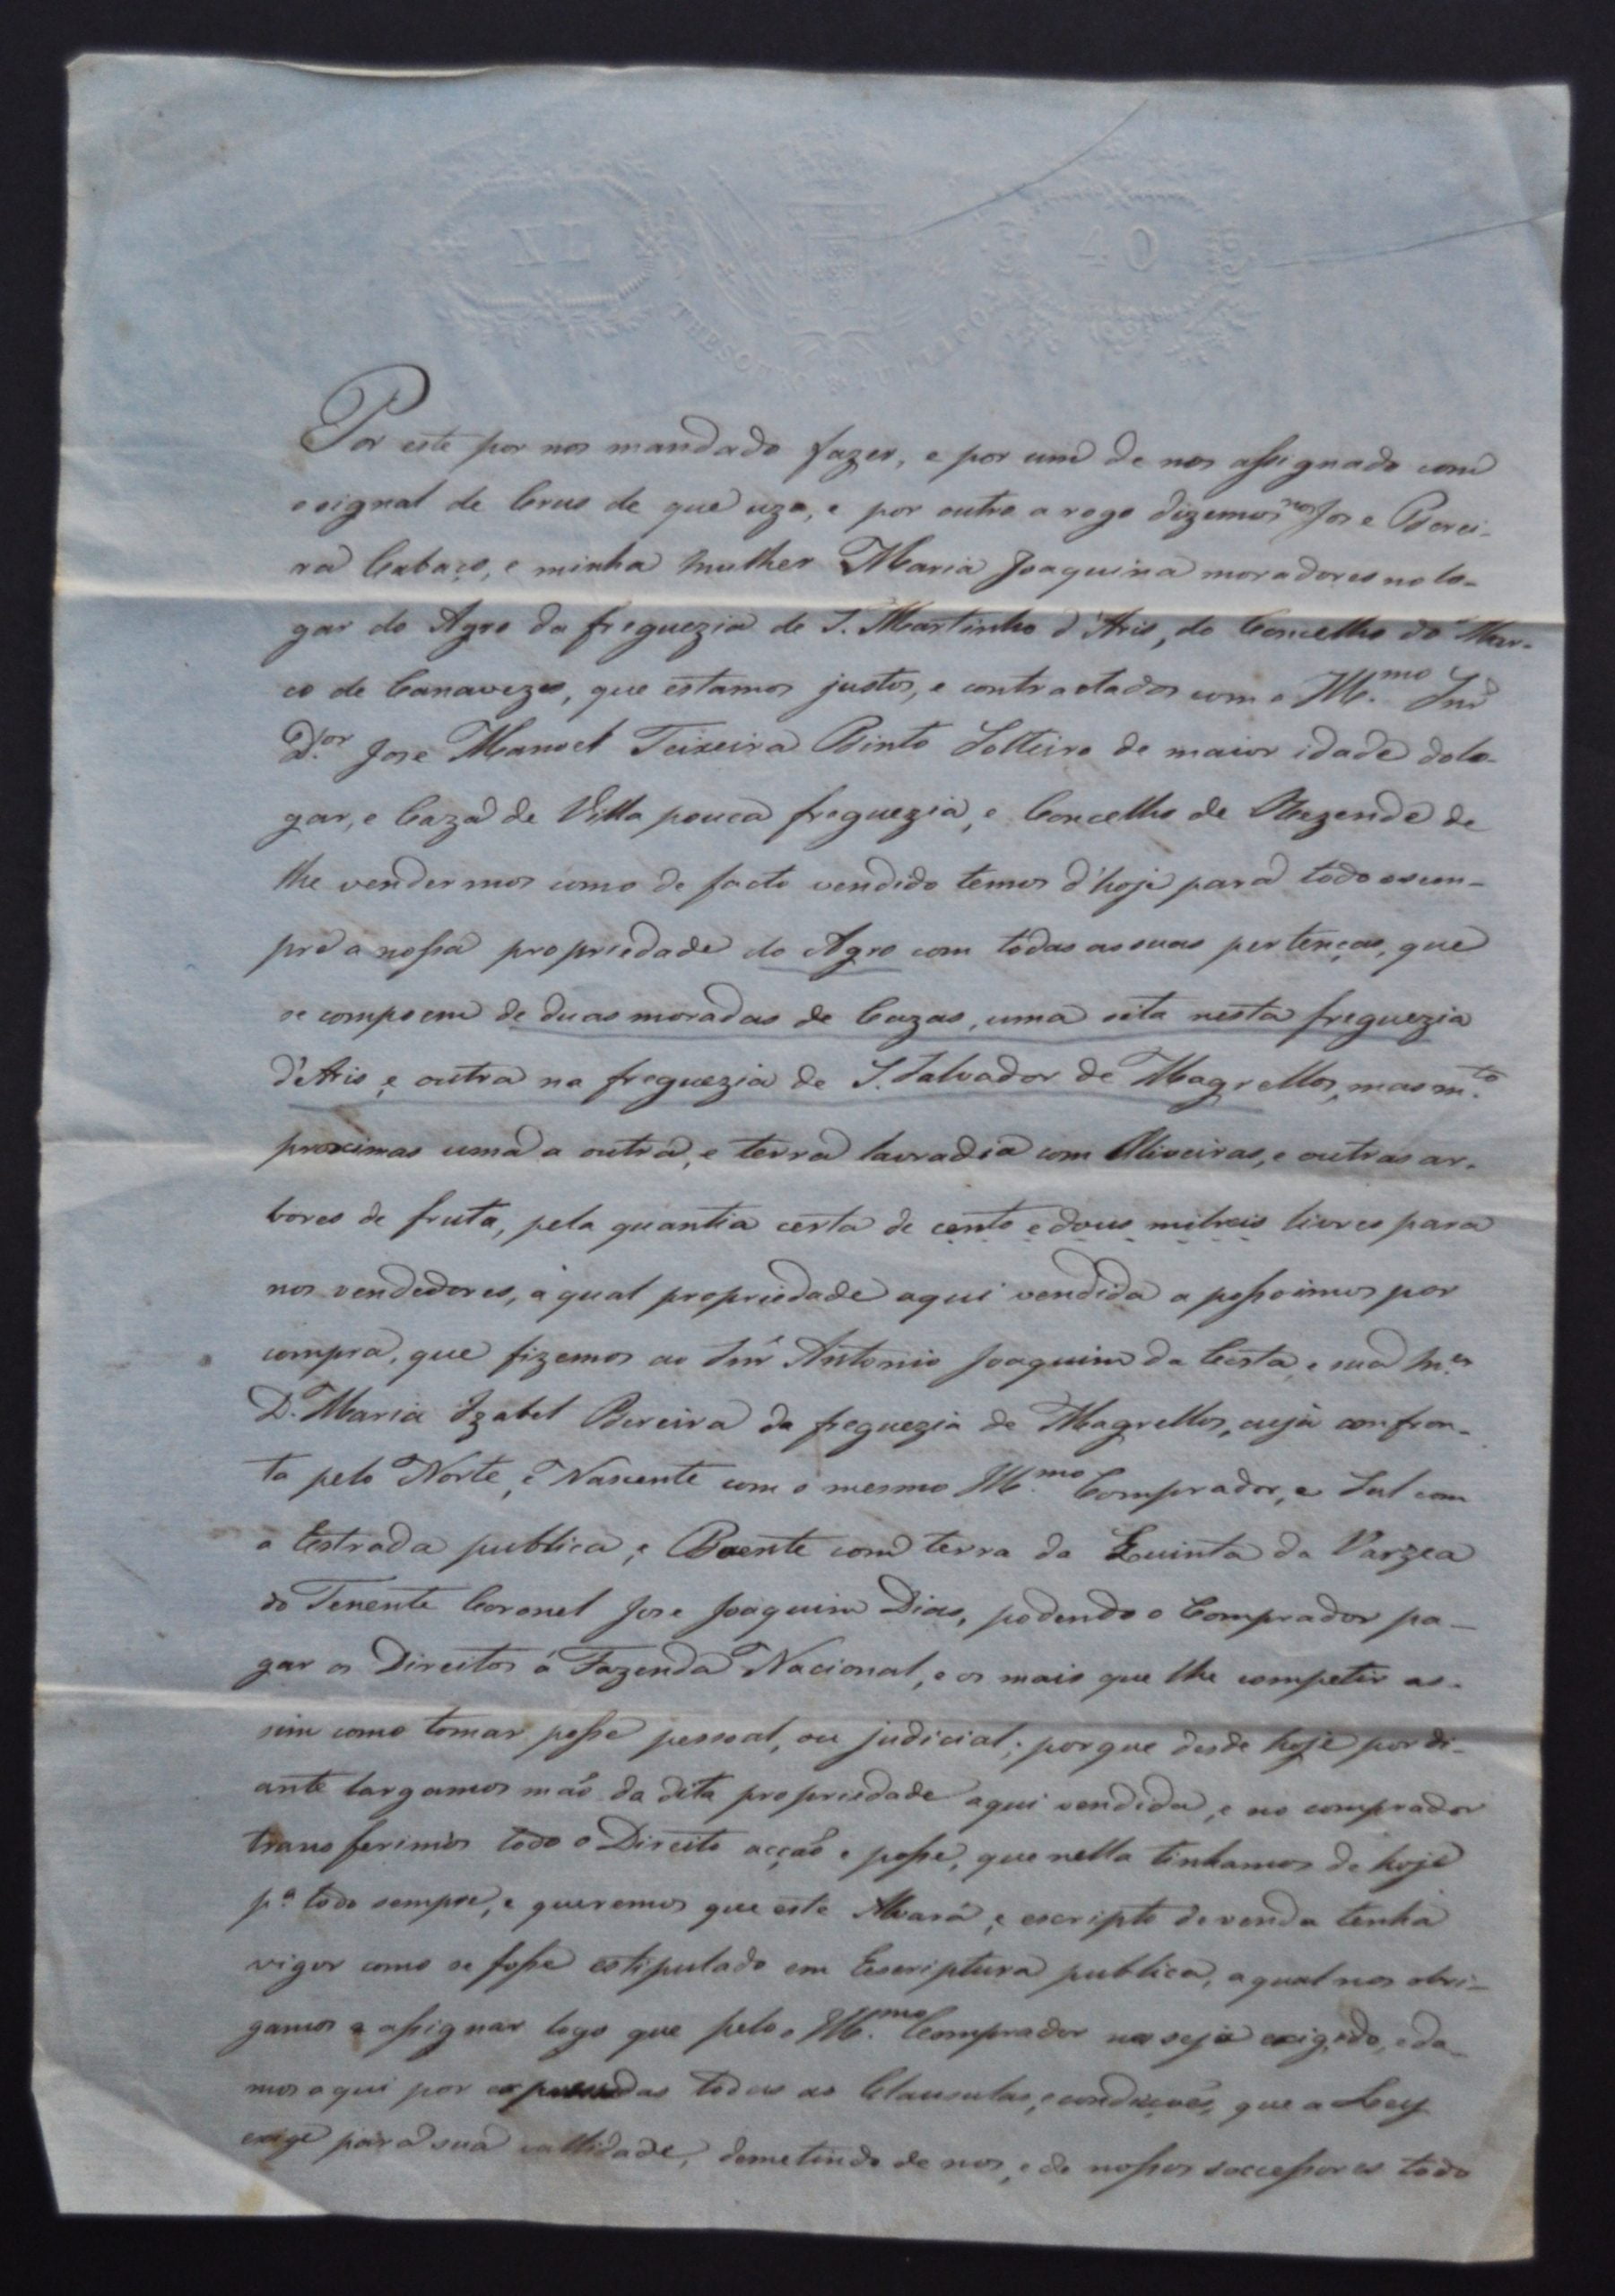 40
THESOURO PUBLICO
Por este por nos mandado fazer, e por um de nos assignado com
o signal de Crus de que uza, e por outro a rogo dizemos nos Jose Perei-
ra Cabaço, e minha mulher Maria Joaquina moradores no lo-
gar do Agro da freguezia de S. Martinho d'Aris, do Concelho do Mar-
co de Canavezes, que estamos justos, e contractados com o Ill.mo Snr
D.or Jose Manoel Teixeira Pinto Solteiro de maior idade do lo-
gar, e Caza de Villa pouca freguezia, e Concelho de Rezende de
lhe vendermos como de facto vendido temos d'hoje para todo o sem-
pre a nossa propriedade do Agro com todas as suas pertenças, que
se compoem de duas moradas de Cazas, uma sita nesta freguezia
d'Aris, e outra na freguezia de S. Salvador de Magrellos, mas m.to
proximas uma a outra, e terra lavradia com Oliveiras, e outras ar-
bores de fruta, pela quantia certa de cento e dous mil reis livres para
nos vendedores, a qual propriedade aqui vendida a possoimos por
compra, que fizemos ao Snr Antonio Joaquim da Costa, e sua M.er
D. Maria Izabel Pereira da freguezia de Magrellos, cuja confron-
ta pelo Norte, e Nascente com o mesmo Ill.mo Comprador, e Sul com
a Estrada publica, e Poente com terra da Quinta da Varzea
do Tenente Coronel Jose Joaquim Dias, podendo o Comprador pa-
gar os Direitos á Fazenda Nacional, e os mais que lhe competir as-
sim como tomar posse pessoal, ou judicial; porque desde hoje por di-
ante largamos mão da dita propriedade aqui vendida, e no comprador
transferimos todo o Direito acção e posse, que nella tinhamos de hoje
p.a todo sempre, e queremos que este Alvará, e escripto de venda tenha
vigor como se fosse estipulado em Escriptura publica, a qual nos obri-
gamos a assignar logo que pelo Ill.mo Comprador nos seja exigido, e da-
mos aqui por expressadas todas as Clausulas, e condicções, que a Ley
exige para sua vallidade, demetindo de nos, e de nossos soccessores todo